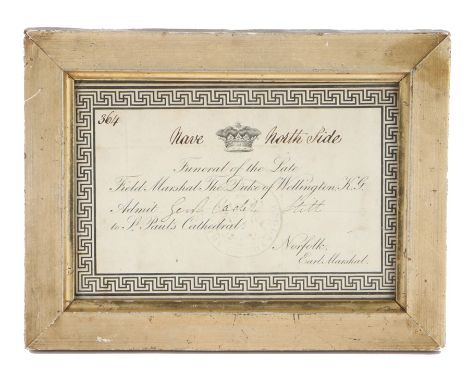 364
Nave North Side
Funeral of the Late
Field Marshal The Duke of Wellington K.G.
Admit
to St. Paul's Cathedral.
Norfolk,
Earl Marshal.